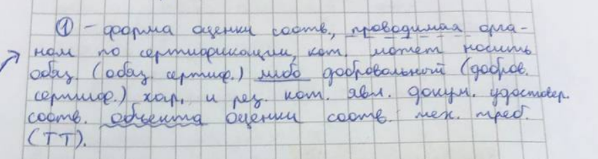 ① – форма оценки соотв., проводимая орга-
ном по сертификации, кот. может носить
обяз (обяз. сертиф.) либо добровольный (добров.
сертиф.) хар. и рез. кот. явл. докум. удостовер.
соотв. объекта оценки соотв. тех. треб.
(ТТ).